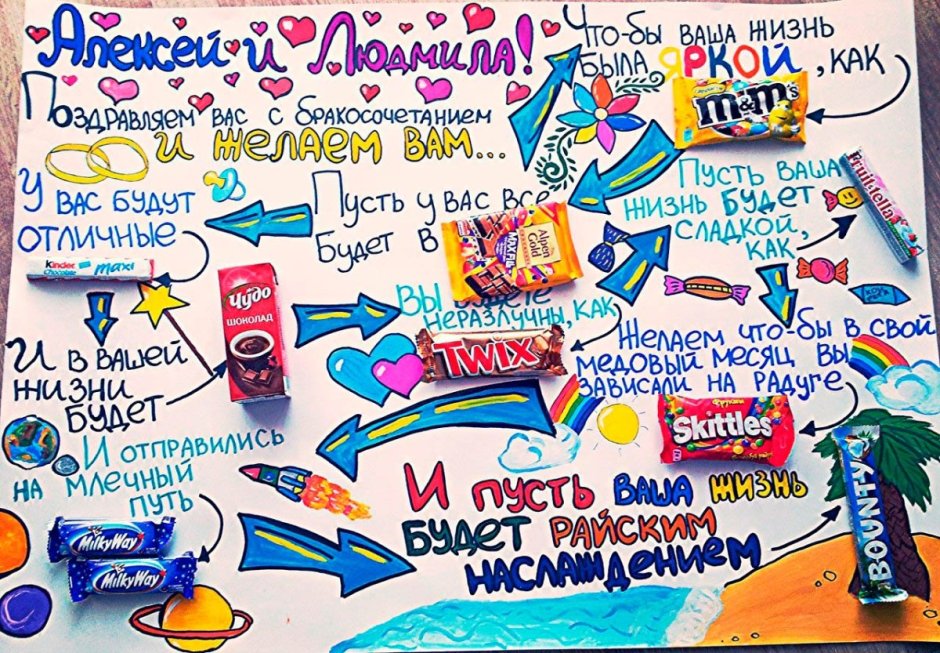 Алексей и Людмила!
Поздравляем вас с бракосочетанием
и желаем вам...
Что-бы ваша жизнь
была яркой, как
m&m's
Пусть ваша
жизнь будет
сладкой,
как
Fruittella
Пусть у вас все
будет в
Alpen Gold
МАХ FUN
У вас будут
отличные
Kinder
Chocolate maxi
И в вашей
жизни
будет
Чудо
шоколад
Вы будете
неразлучны, как
TWIX
Желаем что-бы в свой
медовый месяц вы
зависали на радуге
Фрукты
Skittles
И отправились
на млечный
путь
MilkyWay
MilkyWay
И пусть ваша жизнь
будет райским
наслаждением
BOUNTY